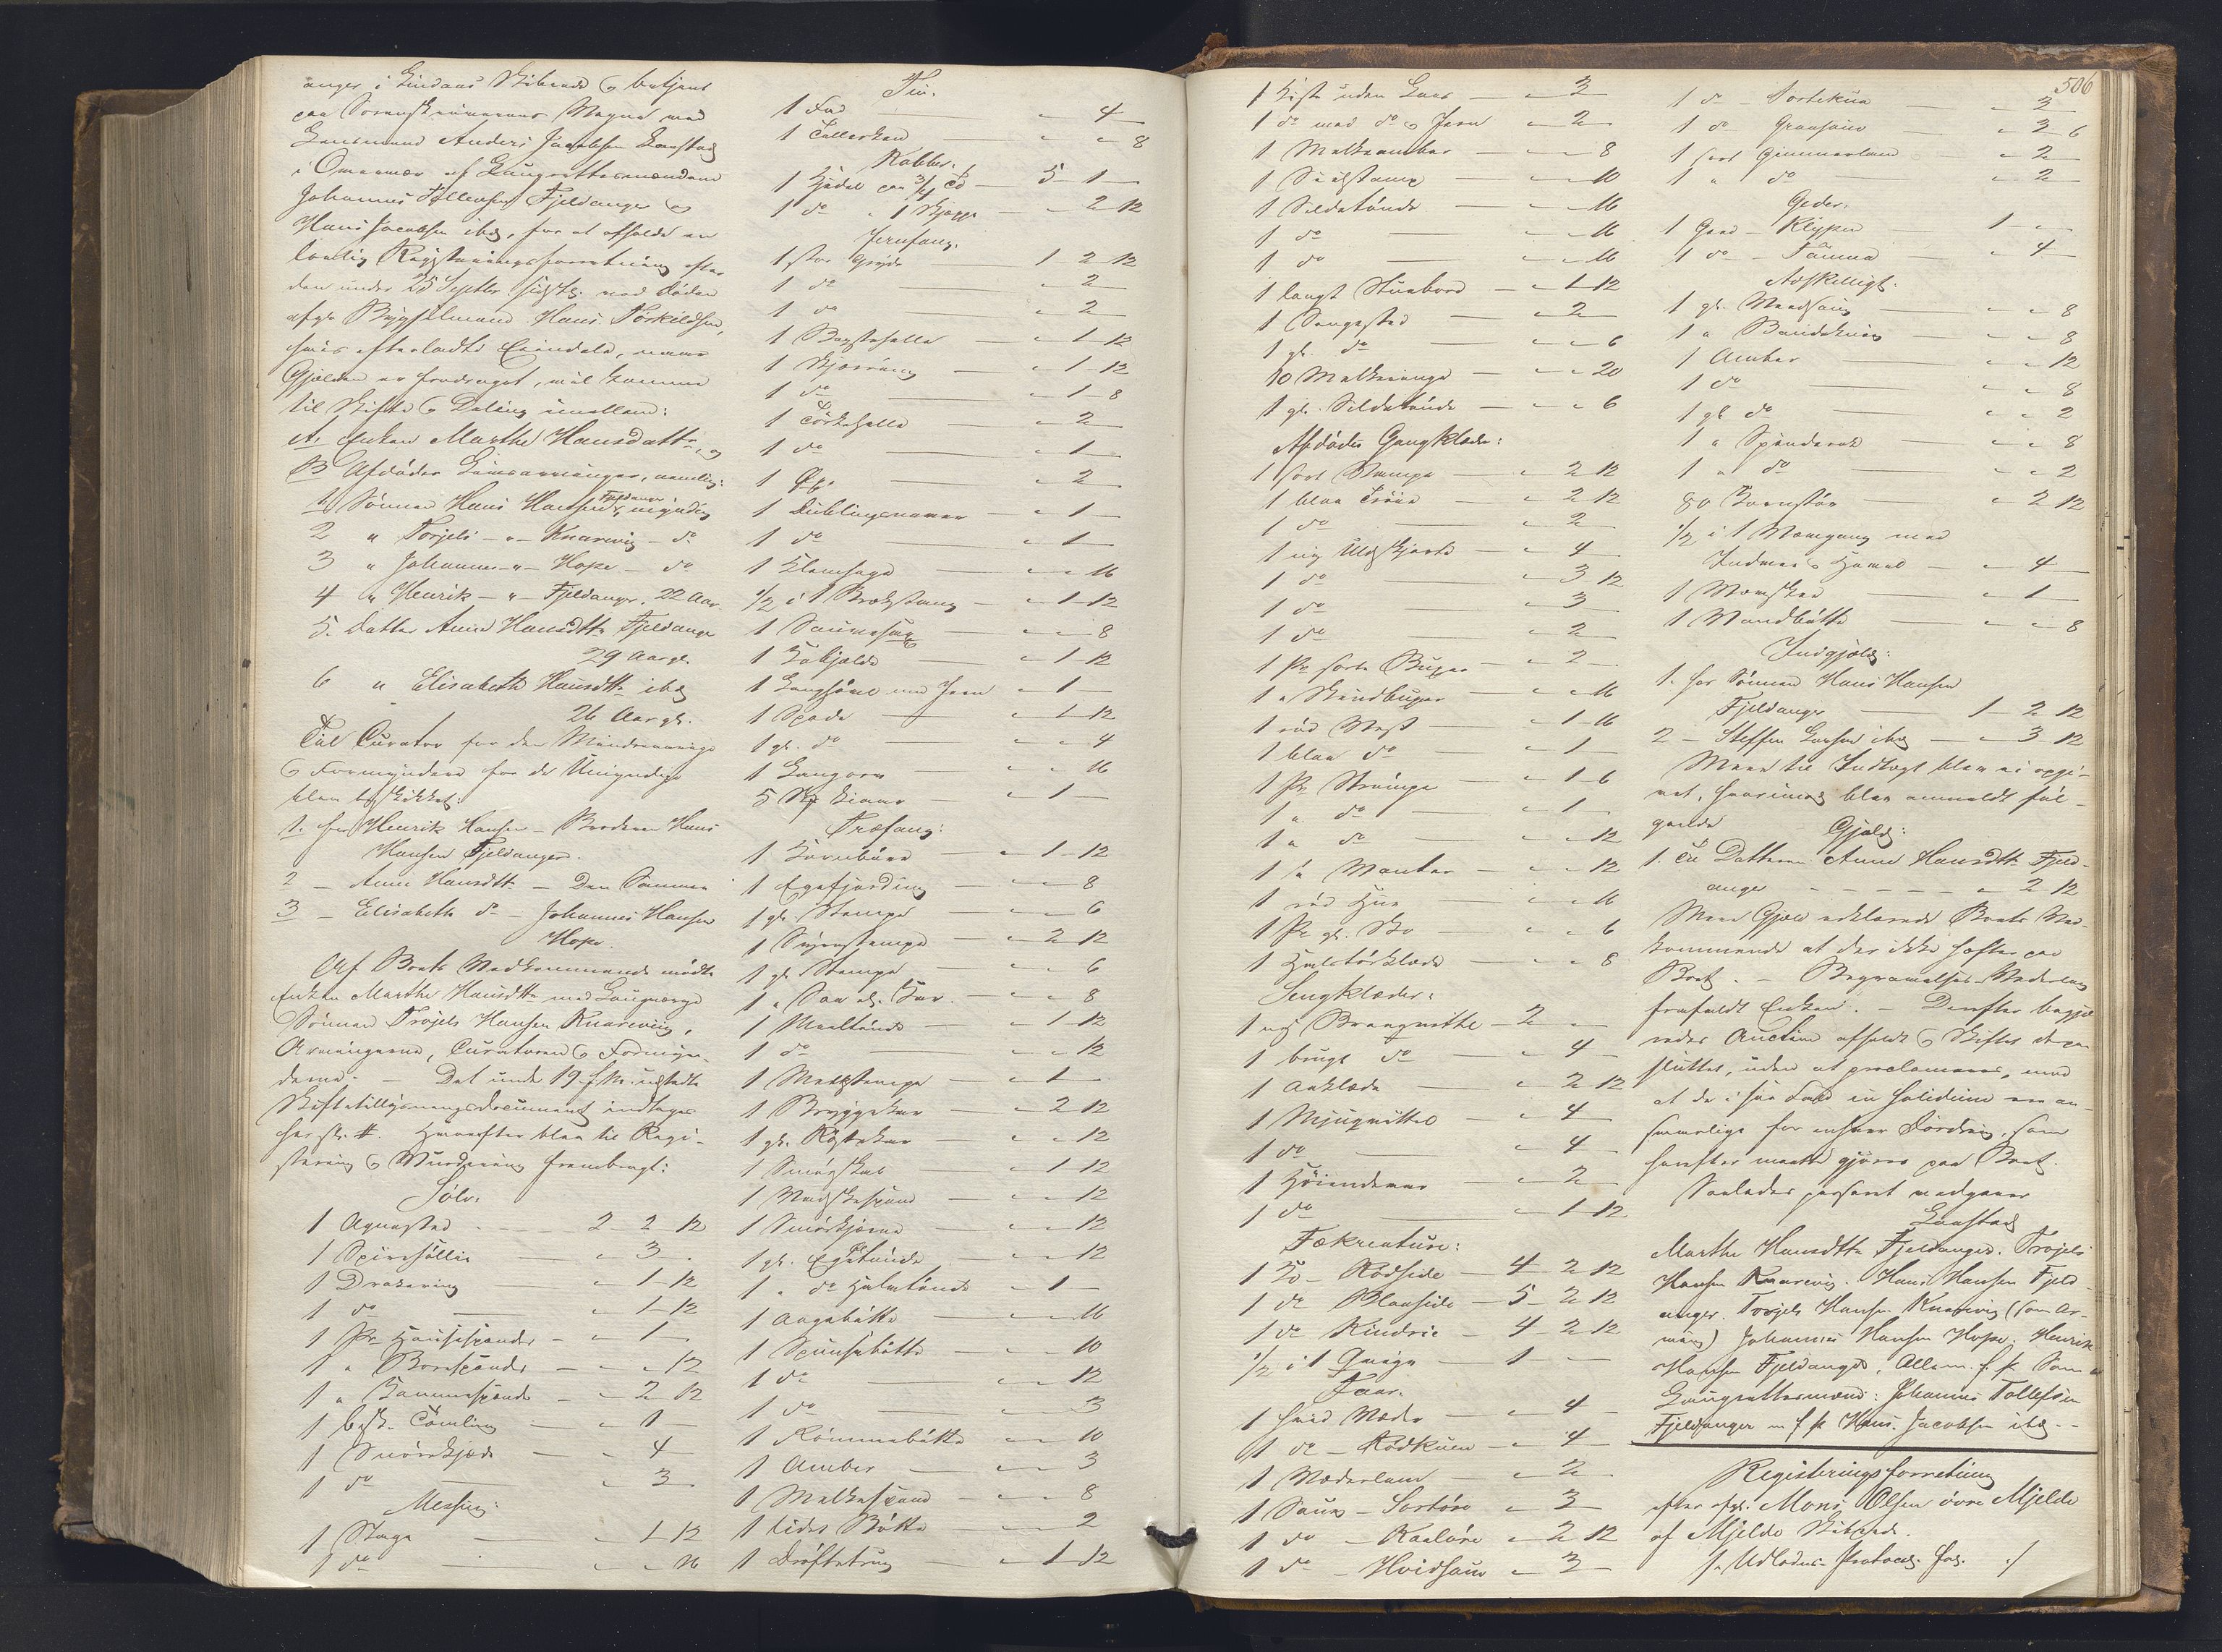 anger i Lindaas Skibrede & betjent
paa Sorenskriverens Vegne med
Lensmand Anders Jacobsen Lonstad
i Overvær af Laugrettesmændene
Johannes Tollevsen Fjeldanger og
Hans Jacobsen ibd, for at afholde en
lovlig Registreringsforretning efter
den under 25 Septbr. sidstl. ved Døden
afgl. Bygselmand Hans Torkildsen,
hvis efterladte Eiendele, naar
Gjælden er fradraget, vil komme
til Skifte & Deling imellem:
A, Enken Marthe Hansdatter, og
B Afdødes Livsarvinger, nemlig:
1, Sønnen Hans Hansen Fjeldanger, myndig
2 " Trojels - " - Knarevig - do
3 " Johannes - " - Hope - do
4 " Henrik - " - Fjeldanger, 22 Aar
5. Datter Anne Hansdtr Fjeldanger
29 Aar gl.
6 " Elisabeth Hansdtr ibd
26 Aar gl.
Til Curator for den Mindreaarige
& Formyndere for de Umyndige
blev beskikket:
1. for Henrik Hansen - Broderen Hans
Hansen Fjeldanger.
2 - Anne Hansdtr - Den Samme
3 - Elisabeth do - Johannes Hansen
Hope.
Af Boets Vedkommende mødte
Enken Marthe Hansdtr med Laugværge
Sønnen Trojels Hansen Knarevig,
Arvingerne, Curatoren & Formyn-
derne. - Det under 19 f. M. udstedte
Skiftetillysningsdocument indtages
her sl. #. Hvorefter blev til Regi-
strering & Vurdering frembragt:
Sølv:
1 Agnasted - 2 - 2 - 12
1 Spiresøllie - " 3 -
1 Drakering - " 1 - 12
1 do - " 1 - 12
1 Pr Halsespænder - " 1 -
1 " Borespænder - " " 12
1 " Kammespænde - " 2 - 12
1 besk. Tømling - " 1 -
1 Snørekjæde - " 4
1 do - " 3
Messing:
1 Stage - " 1 - 12
1 do - " " 16
Tin.
1 Fad - " 4
1 Tallerken - " " 8
Kobber.
1 Kjedel paa 3/4 Td - 5 - 1 -
1 do " 1 Skjeppe - " 2 - 12
Jernfang.
1 stor Gryde - 1 - 2 - 12
1 do - " 2
1 do - " 2
1 Bagstehelle - " 1 - 12
1 Skjæring - " 1 - 12
1 do - " 1 - 8
1 Tørkehelle - " 2
1 do - " 1
1 Øx - " 2
1 Dublingsnaver - " 1
1 do - " 1
1 Klemsage - " " 16
1/2 i 1 Brækstang - " 1 - 12
1 Sauesax - " " 8
1 Kobjælde - " 1 - 12
1 Langhøvl med Jern - " 1 -
1 Spade - " 1 - 12
1 gl. do - " " 4
1 Langorv - " " 16
5 Stk Liaar - " 1
Træfang:
1 Kornbøre - " 1 - 12
1 Egefjerding - " " 8
1 gl. Stampe - " " 6
1 Syrestampe - " 2 - 12
1 gl. Stampe - " " 6
1 " Saa el. Kar - " " 8
1 Meeltønde - " 1 - 12
1 do - " " 12
1 Mæltstampe - " 1
1 Bryggekar - " 2 12
1 gl. Røstekar - " " 12
1 Smørskab - " 1 - 12
1 Madskespand - " " 12
1 Smørkjerne - " " 12
1 gl. Egetønde - " " 12
1 " do Halvtønde - " 1
1 Angebøtte - " " 16
1 Spunsebøtte - " " 10
1 do - " " 12
1 do - " " 3
1 Rømmebøtte - " " 10
1 Amber - " " 3
1 Melkespand - " " 8
1 liden Bøtte - " " 2
1 Drøftetrug - " 1 - 12
1 Kiste uden Laas - " 3
1 do med do & Jern - " 2
1 Melkeamber - " " 8
1 Saalstamp - " " 10
1 Sildetønde - " " 16
1 do - " " 16
1 do - " " 16
1 langt Stuebord - " 1 - 12
1 Sengested - " 2
1 gl. do - " " 6
10 Melkeringe - " " 20
1 gl. Sildetønde - " " 6
Afdødes Gangklæder:
1 sort Vampe - " 2 12
1 blaa Trøie - " 2 12
1 do - " 2
1 ny Uldskjorte - " 4
1 do - " 3 12
1 do - " 3
1 do - " 2
1 Pr sorte Buxer - " 2
1 " Skindbuxer - " " 16
1 rød Vest - " 1 - 16
1 blaa do - " 1
1 Pr Strømper - " 1 - 6
1 " do - " 1
1 " do - " " 12
1 " Vanter - " " 12
1 rød Hue - " " 16
1 Pr gl. Sko - " " 6
1 Halstørklæde - " " 8
Sengklæder:
1 ny Brangvitte - 2 -
1 brugt do - " 4
1 Aaklæde - " 2 12
1 Mjugvittel - " 4
1 do - " 4
1 Høiendevar - " 2
1 do - " 1 - 12
Fækreature:
1 Ko - Rødside - 4 - 2 12
1 do Blaaside - 5 - 2 12
1 do Rindrie - 4 - 2 12
1/2 i 1 Qvige - 1 -
Faar.
1 hvid Væder - " 4
1 do - Rødkuen - " 4
1 Væderlam - " 2
1 Sau - Sortøre - " 3
1 do - Kaaløre - " 2 12
1 do - Hvidsau - " 3
506
1 do - Sortekua - " 3
1 do Graasau - " 3 - 6
1 sort Gimmerlam - " 2
1 " do - " 2
Geder.
1 Geed - Klypen - 1 -
1 do - Tamma - " 4
Adskilligt.
1 gl. Vendsaug - " " 8
1 " Baandekniv - " " 8
1 Amber - " " 12
1 do - " " 8
1 gl do - " " 2
1 " Spinderok - " " 8
1 " do - " " 2
80 Kornstør - " 2 12
1/2 i 1 Vævgang med
Indmad & Hammel - " 4
1 Vævsked - " 1
1 Vandbøtte - " " 8
Indgjæld:
1. hos Sønnen Hans Hansen
Fjeldanger - 1 - 2 12
2 - Steffen Larsen ibd - " 3 12
Mere til Indtægt blev ei opgi-
vet, hvorimod blev anmeldt føl-
gende Gjæld:
1. Til Datteren Anne Hansdtr Fjeld-
anger - - - - - " 2 12
Mere Gjæld erklærede Boets Ved-
kommende at der ikke hefter paa
Boet. - Begravelses-Vederlag
frafaldt Enken. - Derefter begjæ-
redes Auction afholdt & Skiftet derpaa
sluttet, uden at proclameres, mod
at de i saa Fald in solidum ere an-
svarlige for enhver Fordring, som
herefter maatte gjøres paa Boet.
Saaledes passeret vedgaaer
Lonstad
Marthe Hansdtr Fjeldanger. Trojels
Hansen Knarevig. Hans Hansen Fjeld-
anger. Trojels Hansen Knarevig (som Ar-
ving) Johannes Hansen Hope. Henrik
Hansen Fjeldanger, Alle m. f. P. Som
Laugrettesmænd: Johannes Tollefsen
Fjeldanger m. f. P. Hans Jacobsen ibd. -
Registreringsforretning
efter afgl. Mons Olsen øvre Mjelde
af Mjelde Skibrede.
/: Udlodns. Protocol fol. :/